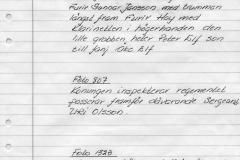 Furir Gunnar Jansson med trumman
längst fram Furir Hoy med
klarinetten i högerhanden den
lille grabben heter Peter Elf son
till fanj Åke Elf
Foto 807
Konungen inspekterar regementet
passerar framför dåvarande Sergeant
Uki Olsson.
Foto 1328